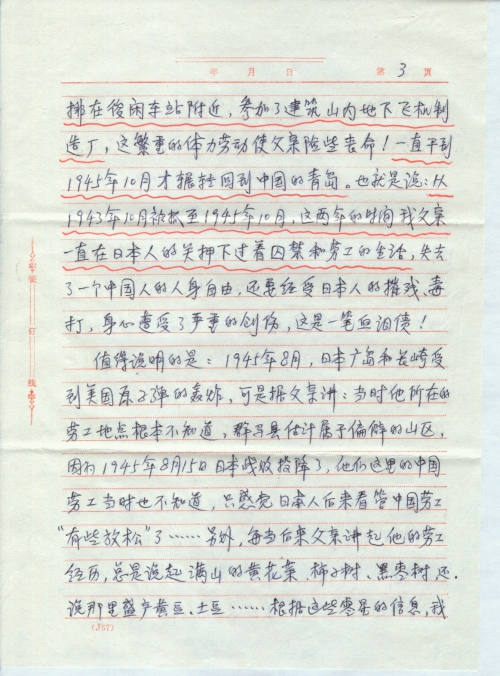 年 月 日 第 3 页
排在后闲车站附近，参加了建筑山内地下飞机制
造厂，这繁重的体力劳动使父亲险些丧命！一直干到
1945年10月才辗转回到中国的青岛。也就是说：从
1943年10月被抓至1945年10月，这两年的时间我父亲
一直在日本人的关押下过着囚禁和劳工的生活，失去
了一个中国人的人身自由，还要经受日本人的摧残、毒
打，身心遭受了严重的创伤，这是一笔血泪债！
值得说明的是：1945年8月，日本广岛和长崎受
到美国原子弹的轰炸，可是据父亲讲：当时他所在的
劳工地点根本不知道，群马县估计属于偏僻的山区，
因为1945年8月15日日本战败投降了，他们这里的中国
劳工当时也不知道，只感觉日本人后来看管中国劳工
“有些放松”了……另外，每当后来父亲讲起他的劳工
经历，总是说起满山的黄花菜、柿子树、黑枣树，还
说那里盛产黄豆、土豆……根据这些零星的信息，我
装 订 线
(J57)